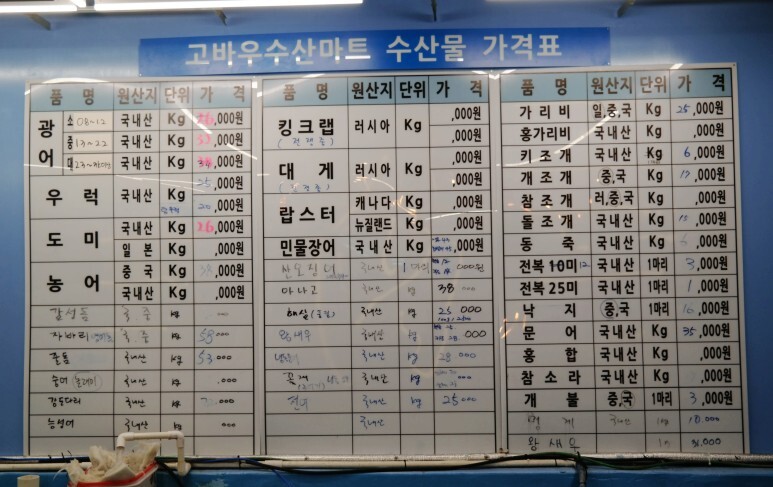 고바우수산마트 수산물 가격표
품 명 원산지 단위 가 격
광어 소 08~12 국내산 Kg ,000원
중 13~22 국내산 Kg ,000원
대 23~ 국내산 Kg ,000원
우 럭 국내산 Kg 25 ,000원
20 ,000원
도 미 국내산 Kg 26 ,000원
일 본 Kg ,000원
농 어 중 국 Kg ,000원
국내산 Kg ,000원
감성돔 국 중 kg 000
자바리 국 중 kg 55 000
줄돔 국내산 kg 53 000
숭어 국내산 kg .000
강도다리 국내산 kg 000
능성어 국내산 kg 000
품 명 원산지 단위 가 격
킹크랩 러시아 Kg ,000원
,000원
대 게 러시아 Kg ,000원
,000원
랍스터 캐나다 Kg ,000원
뉴질랜드 Kg ,000원
민물장어 국내산 Kg ,000원
산오징어 국내산 1마리 ,000원
아나고 국내산 kg 38 000
해삼 국내산 kg 25 000
왕새우 국내산 kg 000
국내산 kg 28 000
꽃게 국내산 kg
전어 국내산 kg 25 000
국내산
품 명 원산지 단위 가 격
가 리 비 일,중,국 Kg 25 ,000원
홍가리비 국내산 Kg ,000원
키 조 개 국내산 Kg 6 ,000원
개 조 개 중,국 Kg 17 ,000원
참 조 개 러,중,국 Kg ,000원
돌 조 개 국내산 Kg 15 ,000원
동 죽 국내산 Kg 6 ,000원
전복 10미 12 국내산 1마리 3 ,000원
전복 25미 국내산 1마리 1 ,000원
낙 지 중,국 1마리 ,000원
문 어 국내산 Kg 35 ,000원
홍 합 국내산 Kg ,000원
참 소 라 국내산 Kg ,000원
개 불 중,국 1마리 3 ,000원
멍 게 국내산 kg 18.000
왕 새 우 31,000